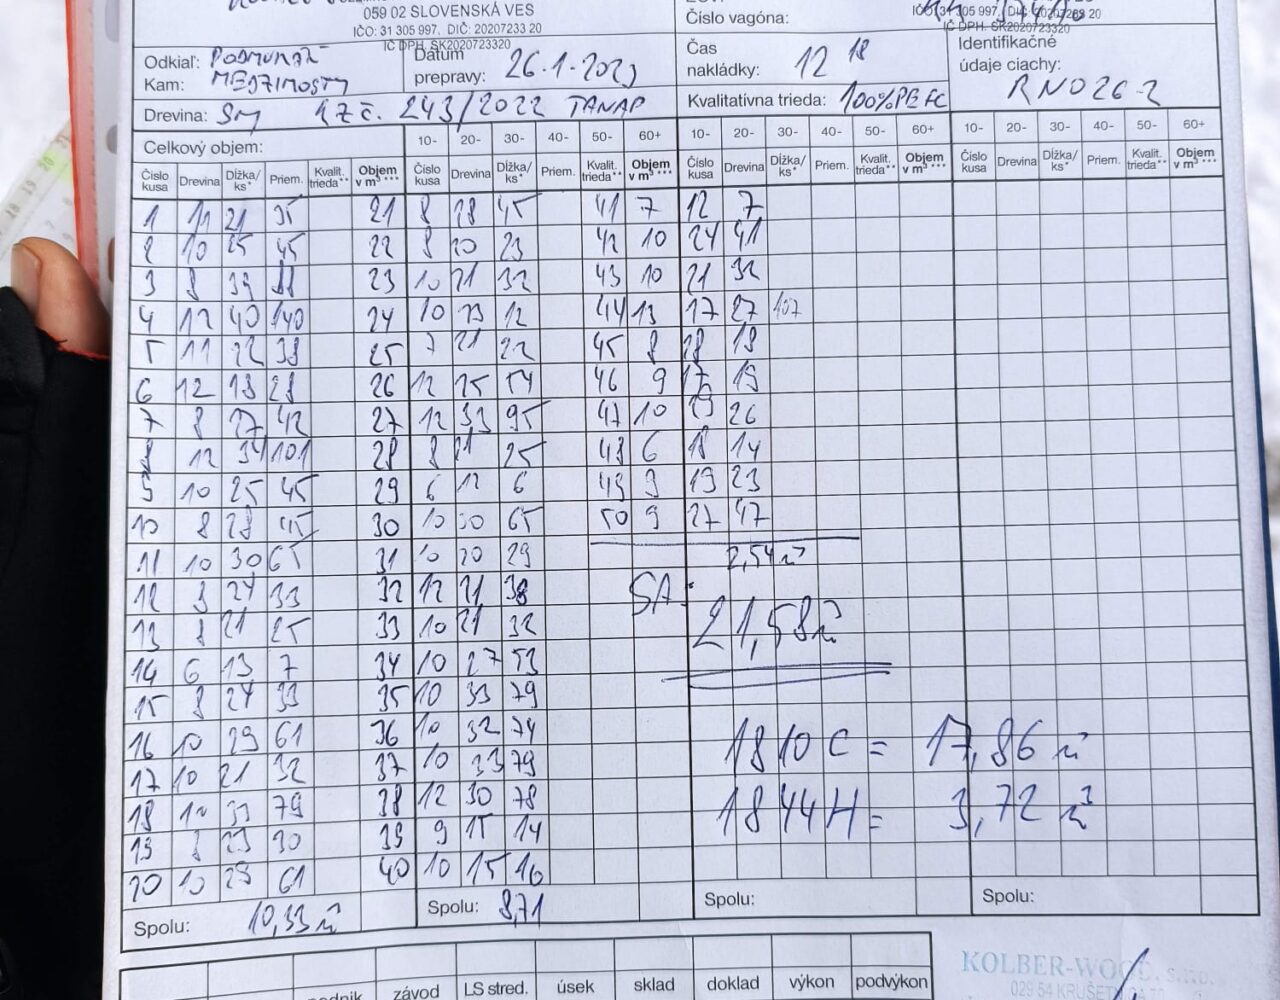 059 02 SLOVENSKÁ VES
IČO: 31 305 997, DIČ: 20207233 20
IČ DPH. SK2020723320
Číslo vagóna:
IČO: 31 305 997, DIČ: 20207233 20
IČ DPH. SK2020723320
Odkiaľ:
Kam: MEDZIMOSTY
Dátum prepravy: 26.1.2023
Čas nakládky: 12 18
Identifikačné údaje ciachy: RN026-2
Drevina: SM 1Z č. 243/2022 TANAP
Kvalitatívna trieda: 100% PEFC
Celkový objem:
10- 20- 30- 40- 50- 60+ 10- 20- 30- 40- 50- 60+ 10- 20- 30- 40- 50- 60+
Číslo kusa Drevina Dĺžka/ks* Priem. Kvalit. trieda** Objem v m³*** Číslo kusa Drevina Dĺžka/ks* Priem. Kvalit. trieda** Objem v m³*** Číslo kusa Drevina Dĺžka/ks* Priem. Kvalit. trieda** Objem v m³*** Číslo kusa Drevina Dĺžka/ks* Priem. Kvalit. trieda** Objem v m³***
1 11 21 35 21 8 28 45 41 7 12 7
2 10 25 45 22 8 20 23 42 10 24 41
3 8 39 88 23 10 21 32 43 10 21 32
4 12 40 140 24 10 13 12 44 13 17 27 107
5 11 22 38 25 7 21 22 45 8 28 18
6 12 18 28 26 12 25 54 46 9 17 19
7 8 27 42 27 12 33 95 47 10 19 26
8 12 34 101 28 8 21 25 48 6 18 14
9 10 25 45 29 6 12 6 49 9 19 23
10 8 28 45 30 10 30 65 50 9 27 47
11 10 30 65 31 10 20 29 2,54 m³
12 8 24 33 32 12 21 38 SA:
13 8 21 25 33 10 21 32 21,58 m³
14 6 13 7 34 10 27 53
15 8 24 33 35 10 33 79
16 10 29 61 36 10 32 74 1810 C = 17,86 m³
17 10 21 32 37 10 33 79
18 10 33 79 38 12 30 78 1844 H = 3,72 m³
19 8 23 30 39 9 15 14
20 10 29 61 40 10 15 16
Spolu: 10,33 m³ Spolu: 8,71 Spolu: Spolu:
závod LS stred. úsek sklad doklad výkon podvýkon
KOLBER-WOOD, s.r.o.